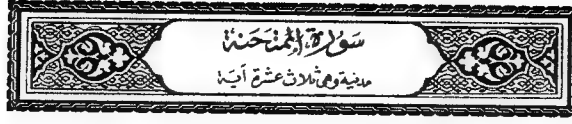 سورة الممتحنة
مدنية وهى ثلاث عشرة آية